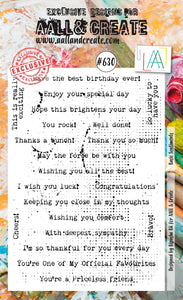 EXCLUSIVE DESIGNS FOR
AALL & CREATE
www.aallandcreate.com
#630
EXCLUSIVE
AALL
Have the best birthday ever!
Enjoy your special day
Hope this brightens your day
You rock!
Well done!
Thanks a bunch!
Thank you so much!
May the force be with you
Wishing you all the best!
I wish you luck!
Congratulations
Keeping you close in my thoughts
Wishing you comfort
With deepest sympathy
I'm so thankful for you every day
You're One of My Official Favourites
You're a Priceless Friend
This is really exciting
So lucky to have you
Cheers!
Bravo!
Designed for AALL & Create